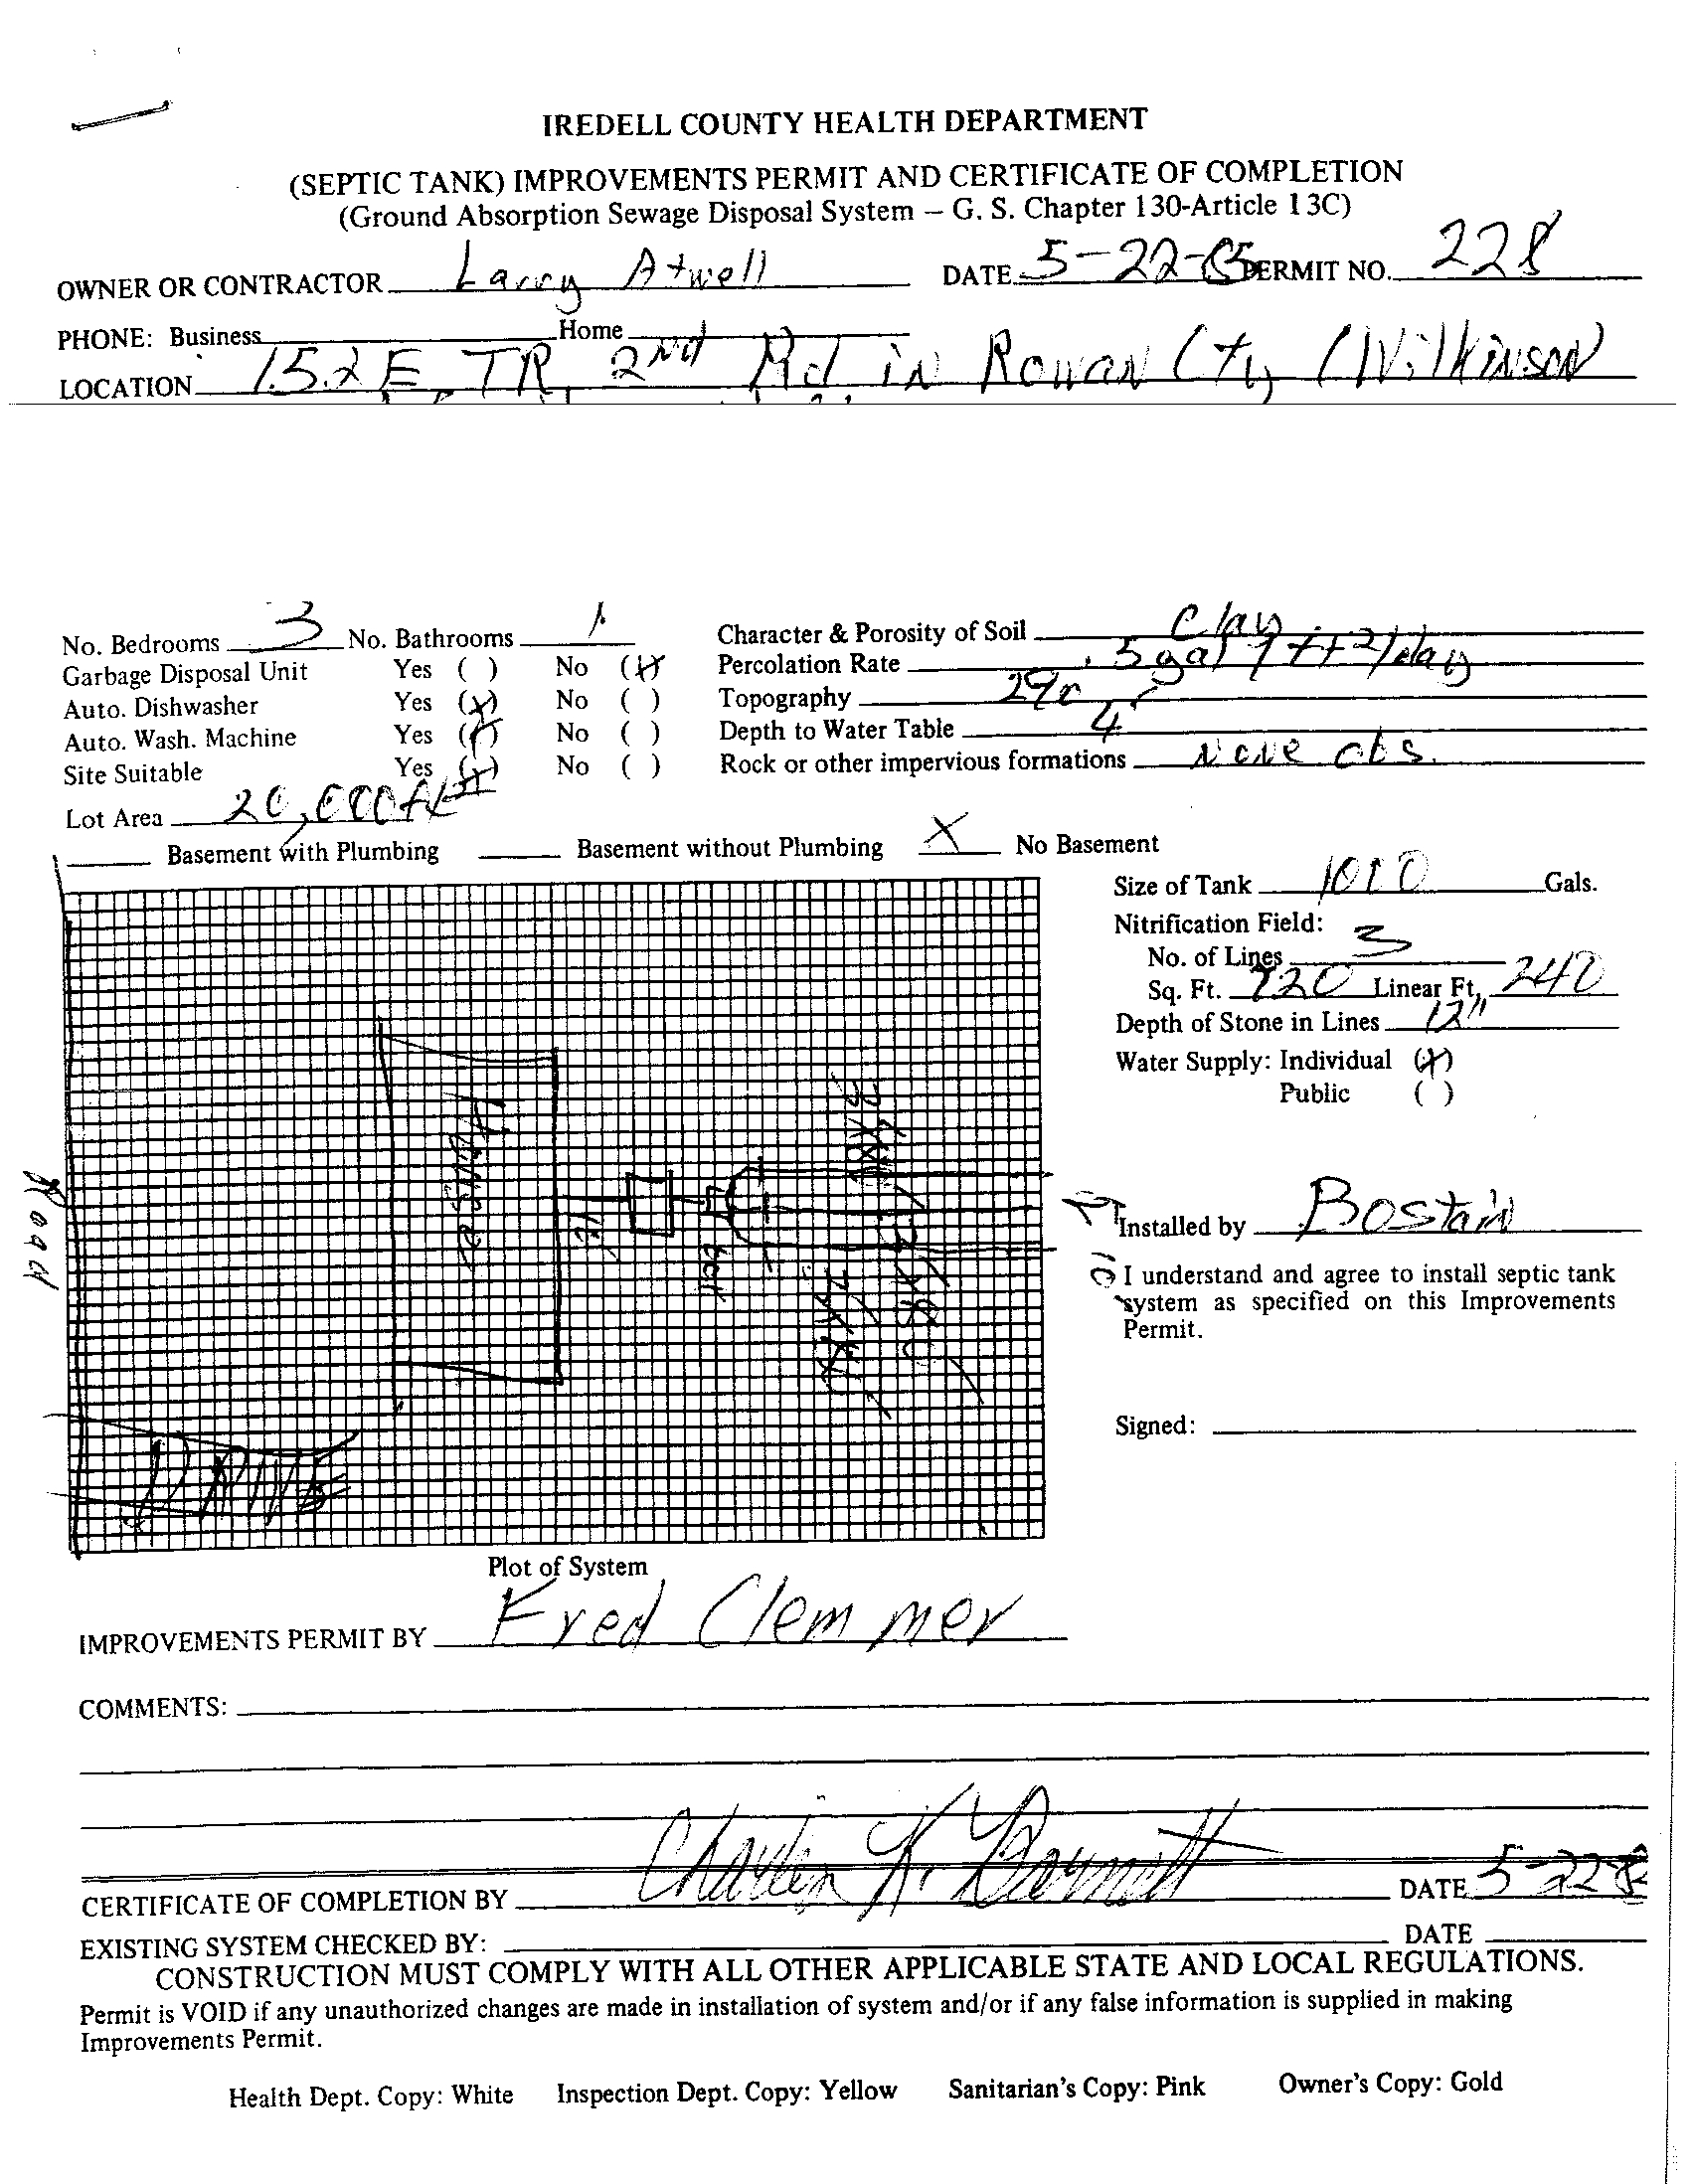 IREDELL COUNTY HEALTH DEPARTMENT
(SEPTIC TANK) IMPROVEMENTS PERMIT AND CERTIFICATE OF COMPLETION
(Ground Absorption Sewage Disposal System – G. S. Chapter 130-Article 13C)
OWNER OR CONTRACTOR Larry Atwell DATE 5-22-85 PERMIT NO. 228
PHONE: Business Home
LOCATION 152 E, TR, 2nd Rd in Rowan Cty (Wilkinson
No. Bedrooms 3 No. Bathrooms 1 Character & Porosity of Soil Clay
Garbage Disposal Unit Yes ( ) No (X) Percolation Rate .5 gal/ft2/day
Auto. Dishwasher Yes (X) No ( ) Topography 2%
Auto. Wash. Machine Yes (X) No ( ) Depth to Water Table 4'
Site Suitable Yes (X) No ( ) Rock or other impervious formations None obs.
Lot Area 20,000 ft
Basement with Plumbing Basement without Plumbing X No Basement
Size of Tank 1000 Gals.
Nitrification Field:
No. of Lines 3
Sq. Ft. 720 Linear Ft. 240
Depth of Stone in Lines 12"
Water Supply: Individual (X)
Public ( )
House
Road
Installed by Bostain
I understand and agree to install septic tank
system as specified on this Improvements
Permit.
Signed:
DRIVE
Plot of System
IMPROVEMENTS PERMIT BY Fred Clemmer
COMMENTS:
CERTIFICATE OF COMPLETION BY DATE 5-22-8
EXISTING SYSTEM CHECKED BY: DATE
CONSTRUCTION MUST COMPLY WITH ALL OTHER APPLICABLE STATE AND LOCAL REGULATIONS.
Permit is VOID if any unauthorized changes are made in installation of system and/or if any false information is supplied in making
Improvements Permit.
Health Dept. Copy: White Inspection Dept. Copy: Yellow Sanitarian's Copy: Pink Owner's Copy: Gold